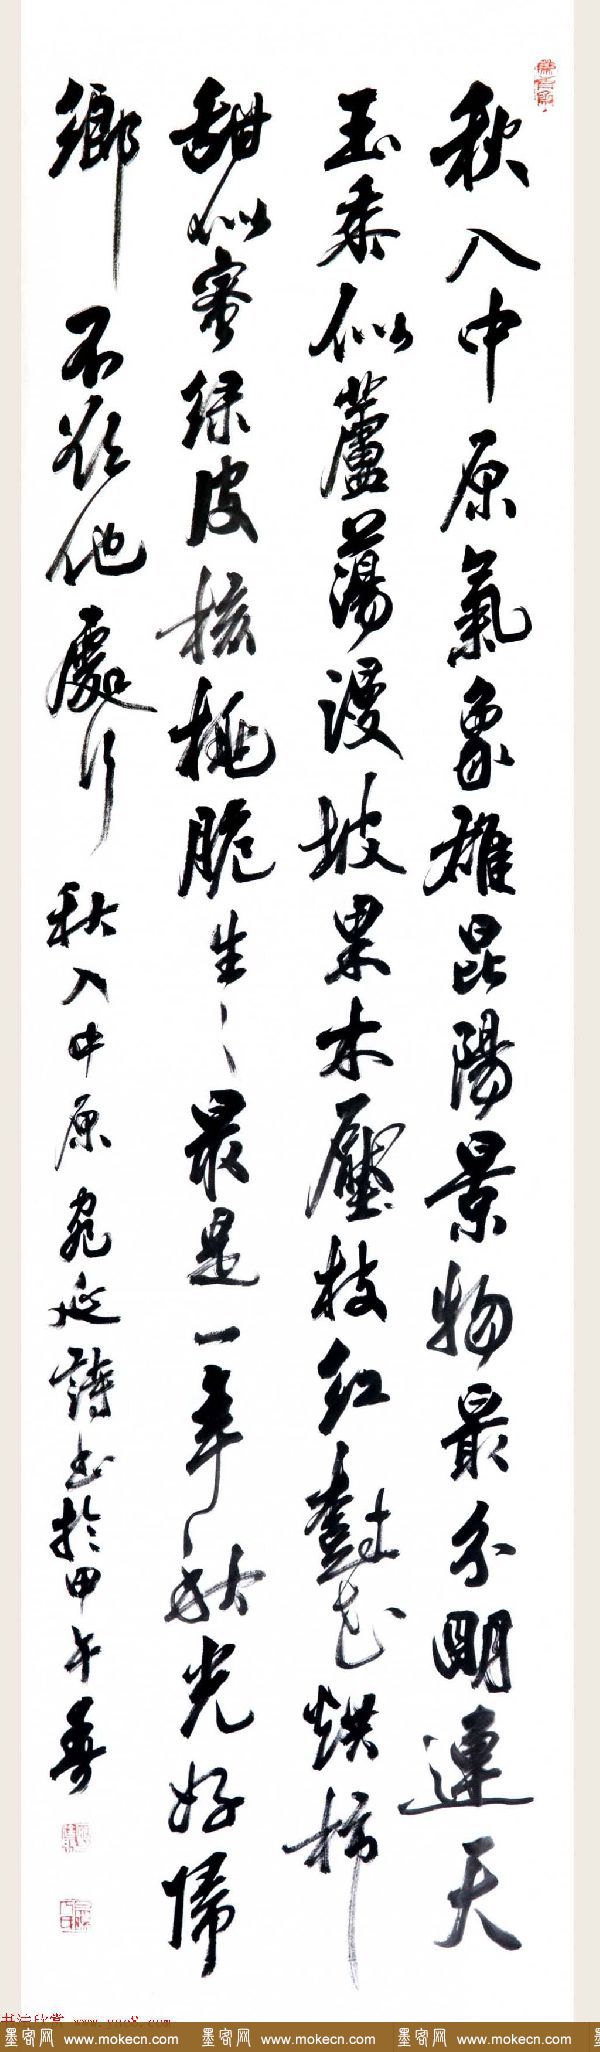 秋入中原氣象雄昆陽景物最分明連天
玉黍似蘆蕩漫坡果木壓枝紅數花烘柿
甜似蜜綠皮核桃脆生〻最是一年秋光好歸
鄉不欲他處行
秋入中原宛延詩書於甲午秀
墨客网 www.mokecn.com 墨客网 www.mokecn.com 墨客网 www.mokecn.com